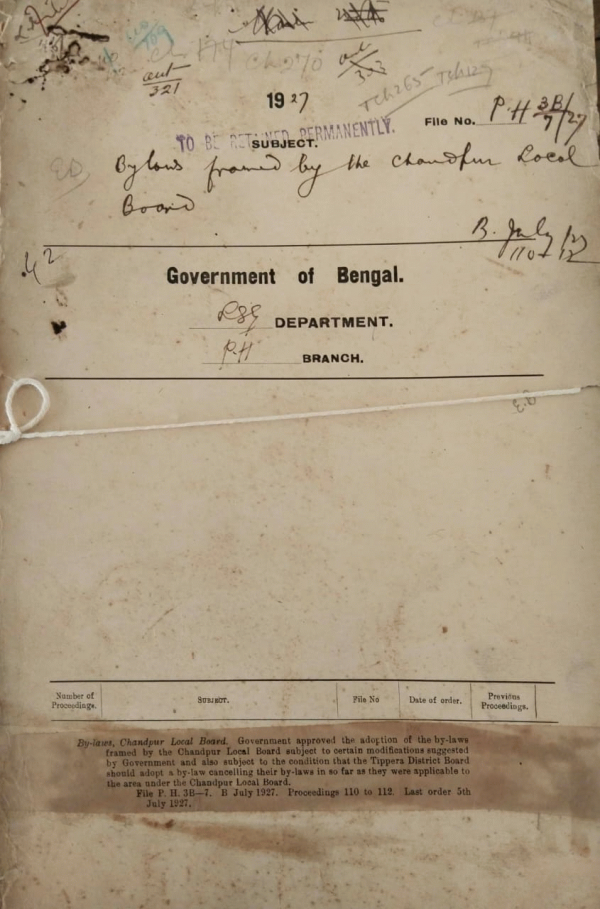 Ch 270
1927
File No. P. H 3B/7/27
TO BE RETAINED PERMANENTLY.
SUBJECT.
Bylaws framed by the Chandpur Local
Board
B. July/27
110-112
Government of Bengal.
LSG DEPARTMENT.
P.H BRANCH.
Number of Proceedings. SUBJECT. File No Date of order. Previous Proceedings.
By-laws, Chandpur Local Board. Government approved the adoption of the by-laws
framed by the Chandpur Local Board subject to certain modifications suggested
by Government and also subject to the condition that the Tippera District Board
should adopt a by-law cancelling their by-laws in so far as they were applicable to
the area under the Chandpur Local Board.
File P. H. 3B—7. B July 1927. Proceedings 110 to 112. Last order 5th
July 1927.